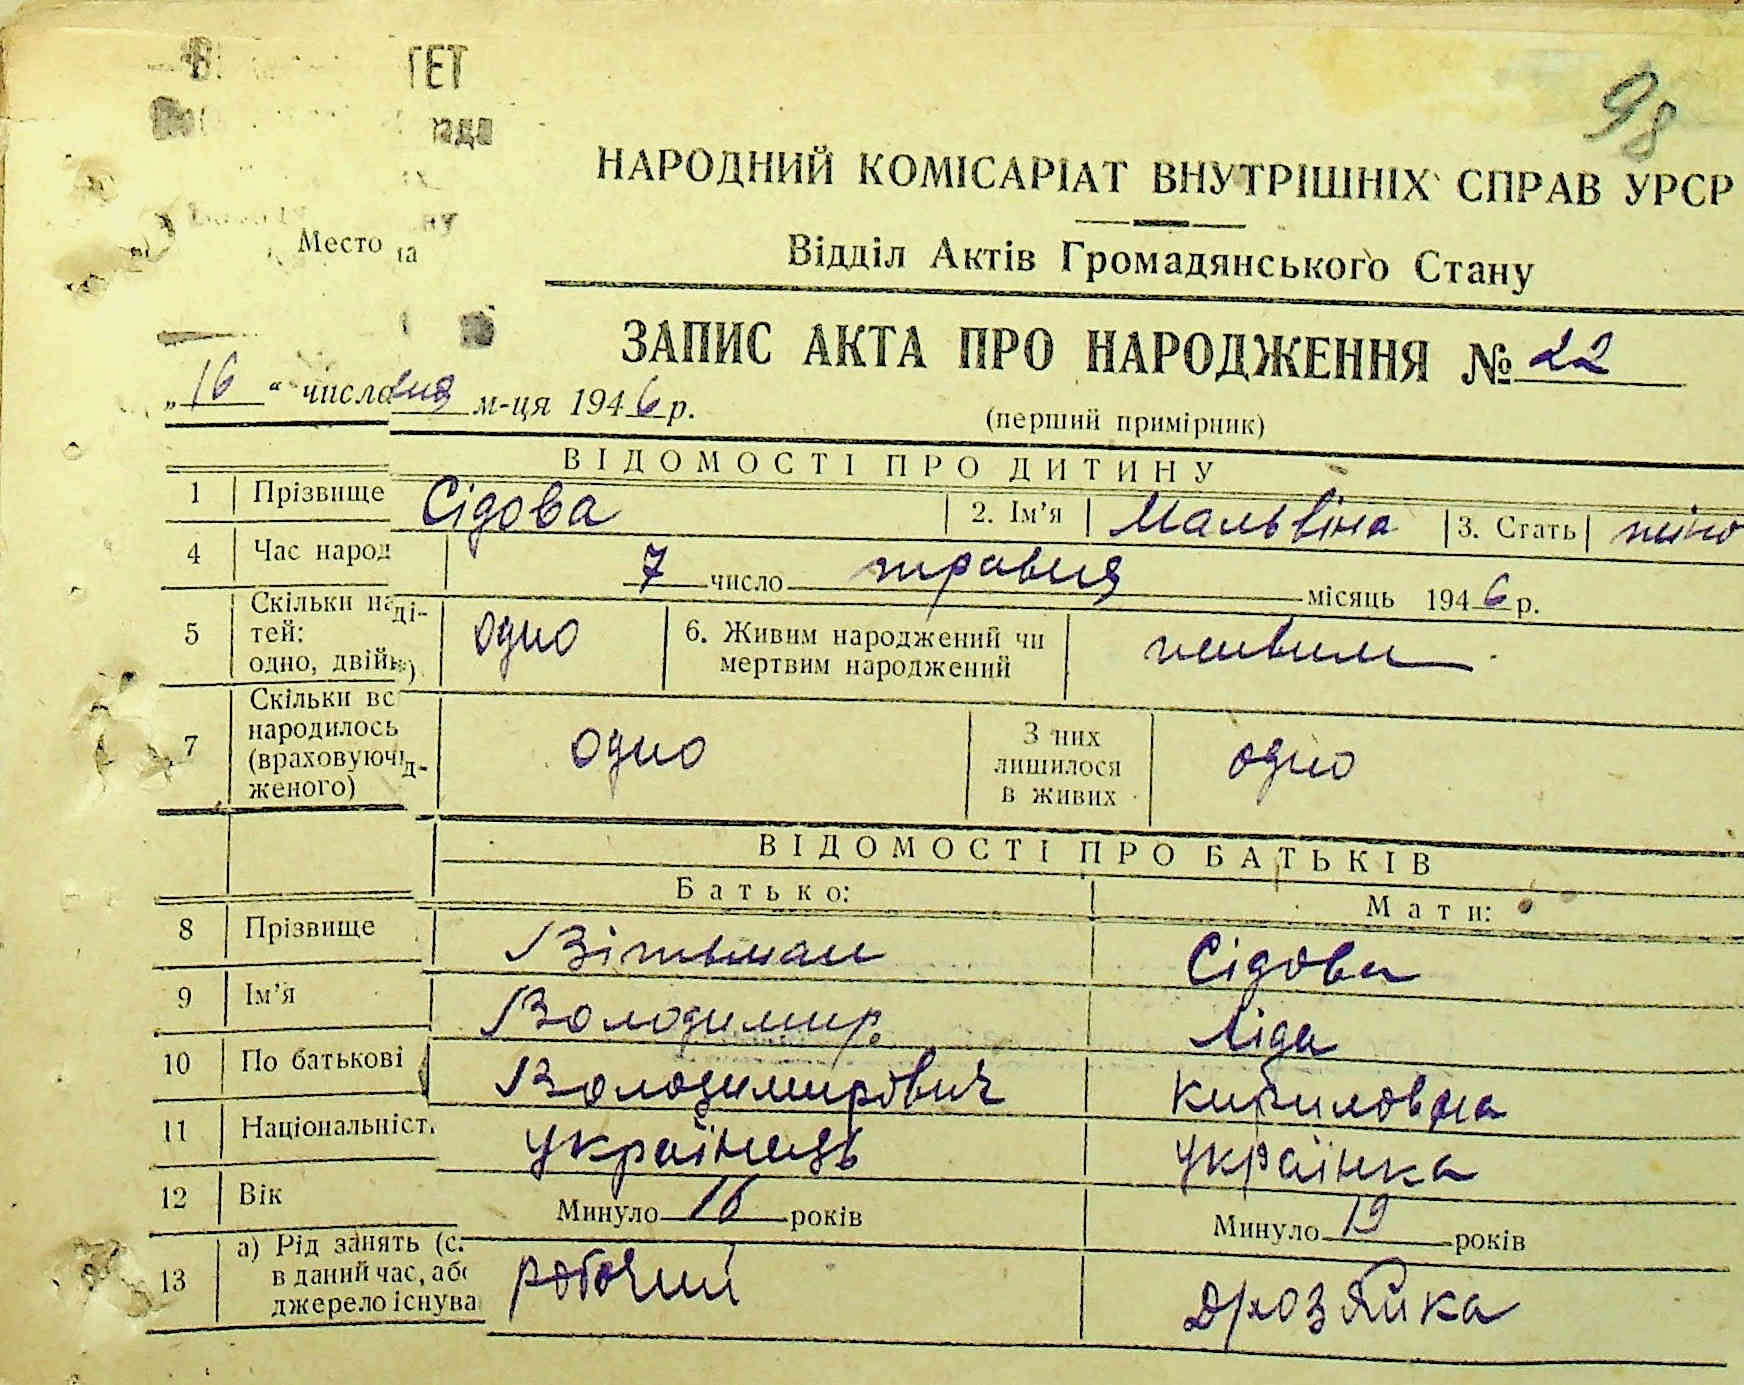 ГЕТ
рада
98
НАРОДНИЙ КОМІСАРІАТ ВНУТРІШНІХ СПРАВ УРСР
Відділ Актів Громадянського Стану
Место
ЗАПИС АКТА ПРО НАРОДЖЕННЯ № 22
(перший примірник)
„16“ числа вня м-ця 1946 р.
ВІДОМОСТІ ПРО ДИТИНУ
1 Прізвище Сідова 2. Ім'я Мальвіна 3. Стать жіно
4 Час народ 7 число травня місяць 1946 р.
5 Скільки на ді-
тей:
одно, двійн) одно 6. Живим народжений чи
мертвим народжений живим
7 Скільки вс
народилось
(враховуючи д-
женого) одно З них
лишилося
в живих одно
ВІДОМОСТІ ПРО БАТЬКІВ
Батько: Мати:
8 Прізвище Вітьман Сідова
9 Ім'я Володимир Ліда
10 По батькові Володимирович Кириловна
11 Національніст Українець Українка
12 Вік Минуло 16 років Минуло 19 років
13 а) Рід занять (с.
в даний час, або
джерело існува робочий дрозяйка